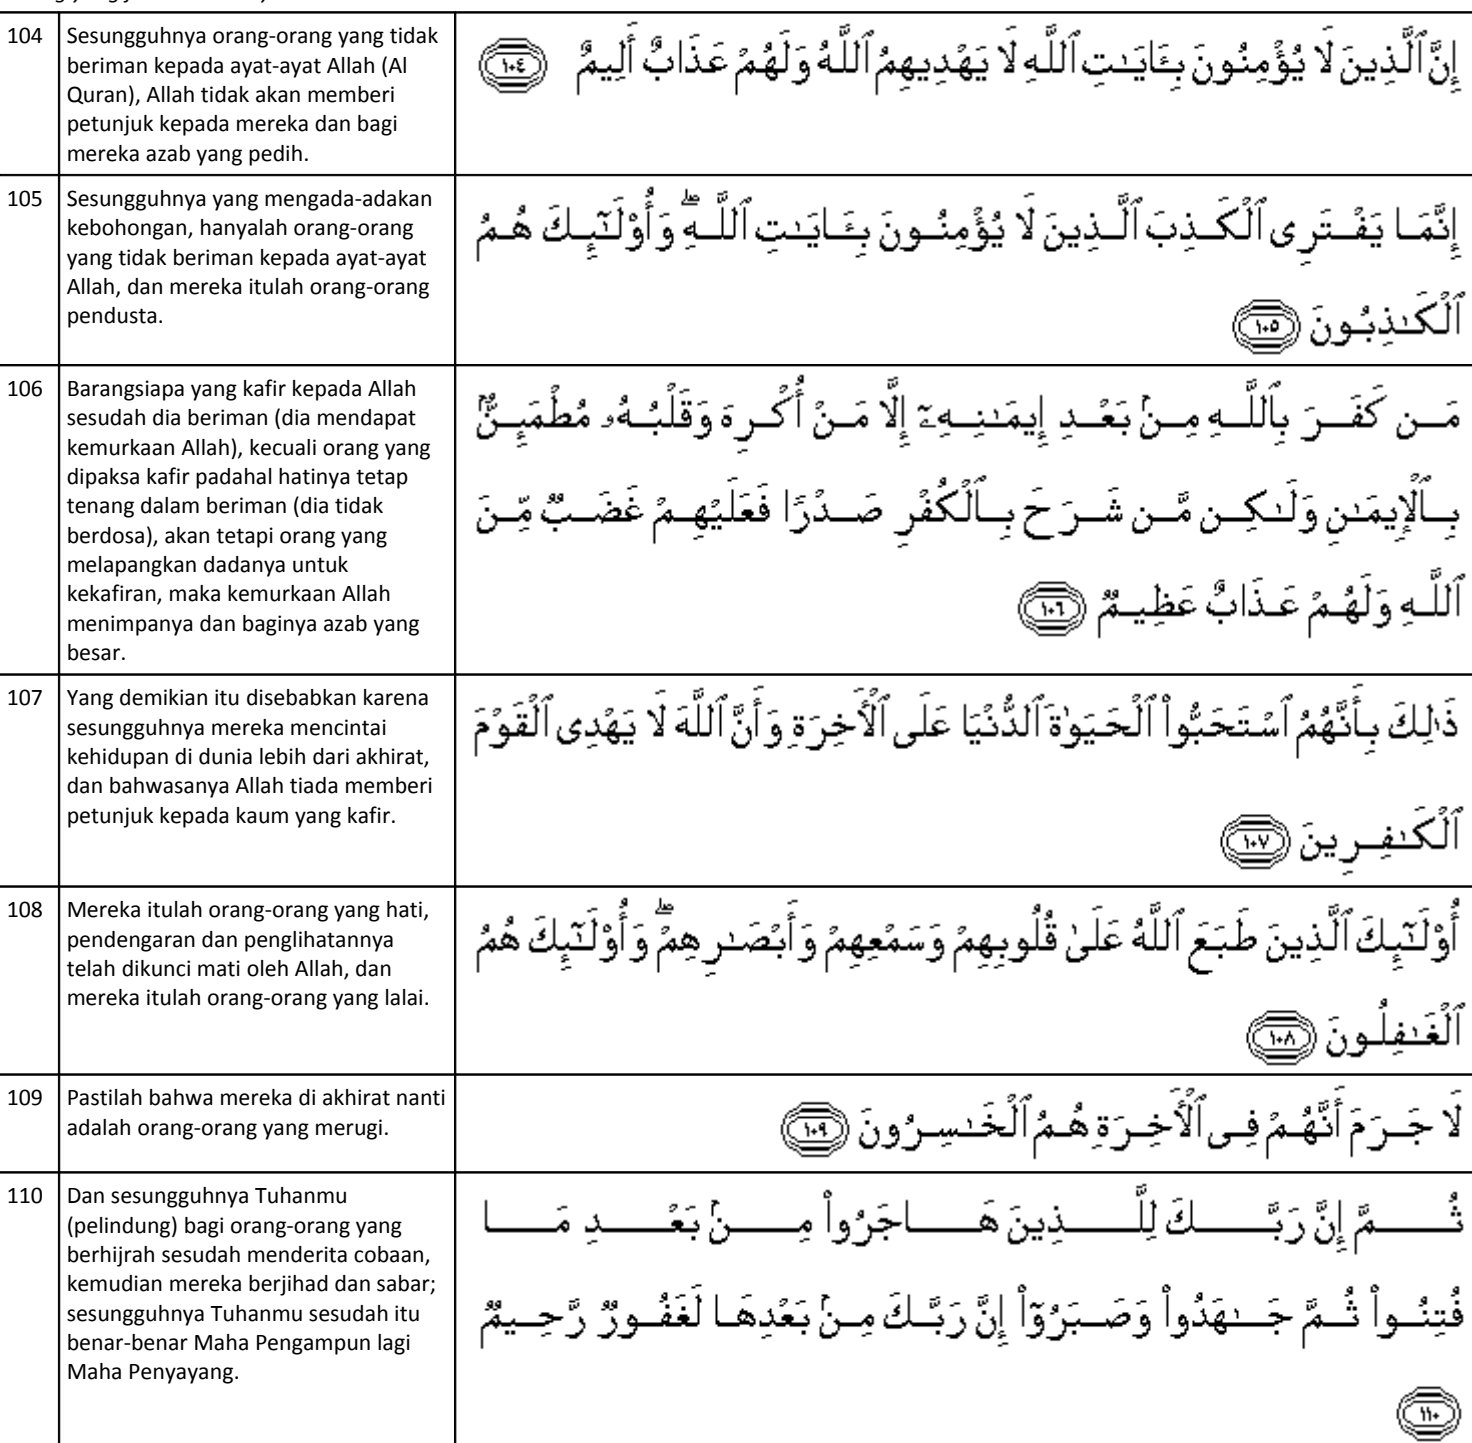 104
Sesungguhnya orang-orang yang tidak
beriman kepada ayat-ayat Allah (Al
Quran), Allah tidak akan memberi
petunjuk kepada mereka dan bagi
mereka azab yang pedih.
إِنَّ ٱلَّذِينَ لَا يُؤْمِنُونَ بِـَٔايَـٰتِ ٱللَّهِ لَا يَهْدِيهِمُ ٱللَّهُ وَلَهُمْ عَذَابٌ أَلِيمٌ ١٠٤
105
Sesungguhnya yang mengada-adakan
kebohongan, hanyalah orang-orang
yang tidak beriman kepada ayat-ayat
Allah, dan mereka itulah orang-orang
pendusta.
إِنَّمَا يَفْتَرِى ٱلْكَذِبَ ٱلَّذِينَ لَا يُؤْمِنُونَ بِـَٔايَـٰتِ ٱللَّهِ ۖ وَأُوْلَـٰٓئِكَ هُمُ
ٱلْكَـٰذِبُونَ ١٠٥
106
Barangsiapa yang kafir kepada Allah
sesudah dia beriman (dia mendapat
kemurkaan Allah), kecuali orang yang
dipaksa kafir padahal hatinya tetap
tenang dalam beriman (dia tidak
berdosa), akan tetapi orang yang
melapangkan dadanya untuk
kekafiran, maka kemurkaan Allah
menimpanya dan baginya azab yang
besar.
مَن كَفَرَ بِٱللَّهِ مِنۢ بَعْدِ إِيمَـٰنِهِۦٓ إِلَّا مَنْ أُكْرِهَ وَقَلْبُهُۥ مُطْمَئِنٌّۢ
بِٱلْإِيمَـٰنِ وَلَـٰكِن مَّن شَرَحَ بِٱلْكُفْرِ صَدْرًا فَعَلَيْهِمْ غَضَبٌ مِّنَ
ٱللَّهِ وَلَهُمْ عَذَابٌ عَظِيمٌ ١٠٦
107
Yang demikian itu disebabkan karena
sesungguhnya mereka mencintai
kehidupan di dunia lebih dari akhirat,
dan bahwasanya Allah tiada memberi
petunjuk kepada kaum yang kafir.
ذَٰلِكَ بِأَنَّهُمُ ٱسْتَحَبُّواْ ٱلْحَيَوٰةَ ٱلدُّنْيَا عَلَى ٱلْأَخِرَةِ وَأَنَّ ٱللَّهَ لَا يَهْدِى ٱلْقَوْمَ
ٱلْكَـٰفِرِينَ ١٠٧
108
Mereka itulah orang-orang yang hati,
pendengaran dan penglihatannya
telah dikunci mati oleh Allah, dan
mereka itulah orang-orang yang lalai.
أُوْلَـٰٓئِكَ ٱلَّذِينَ طَبَعَ ٱللَّهُ عَلَىٰ قُلُوبِهِمْ وَسَمْعِهِمْ وَأَبْصَـٰرِهِمْ ۖ وَأُوْلَـٰٓئِكَ هُمُ
ٱلْغَـٰفِلُونَ ١٠٨
109
Pastilah bahwa mereka di akhirat nanti
adalah orang-orang yang merugi.
لَا جَرَمَ أَنَّهُمْ فِى ٱلْأَخِرَةِ هُمُ ٱلْخَـٰسِرُونَ ١٠٩
110
Dan sesungguhnya Tuhanmu
(pelindung) bagi orang-orang yang
berhijrah sesudah menderita cobaan,
kemudian mereka berjihad dan sabar;
sesungguhnya Tuhanmu sesudah itu
benar-benar Maha Pengampun lagi
Maha Penyayang.
ثُمَّ إِنَّ رَبَّكَ لِلَّذِينَ هَاجَرُواْ مِنۢ بَعْدِ مَا
فُتِنُواْ ثُمَّ جَـٰهَدُواْ وَصَبَرُوٓاْ إِنَّ رَبَّكَ مِنۢ بَعْدِهَا لَغَفُورٌ رَّحِيمٌ
١١٠